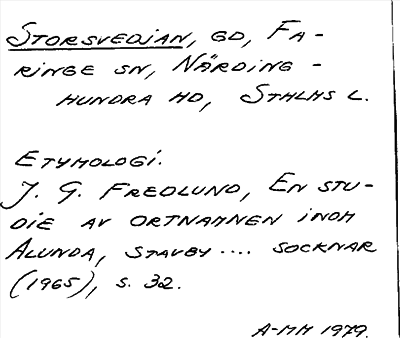 STORSVEDJAN, GD, FA-
RINGE SN, NÄRDING-
HUNDRA HD, STHLMS L.
ETYMOLOGI.
J. G. FREDLUND, EN STU-
DIE AV ORTNAMNEN INOM
ALUNDA, STAVBY .... SOCKNAR
(1965), S. 32.
A-MM 1979.